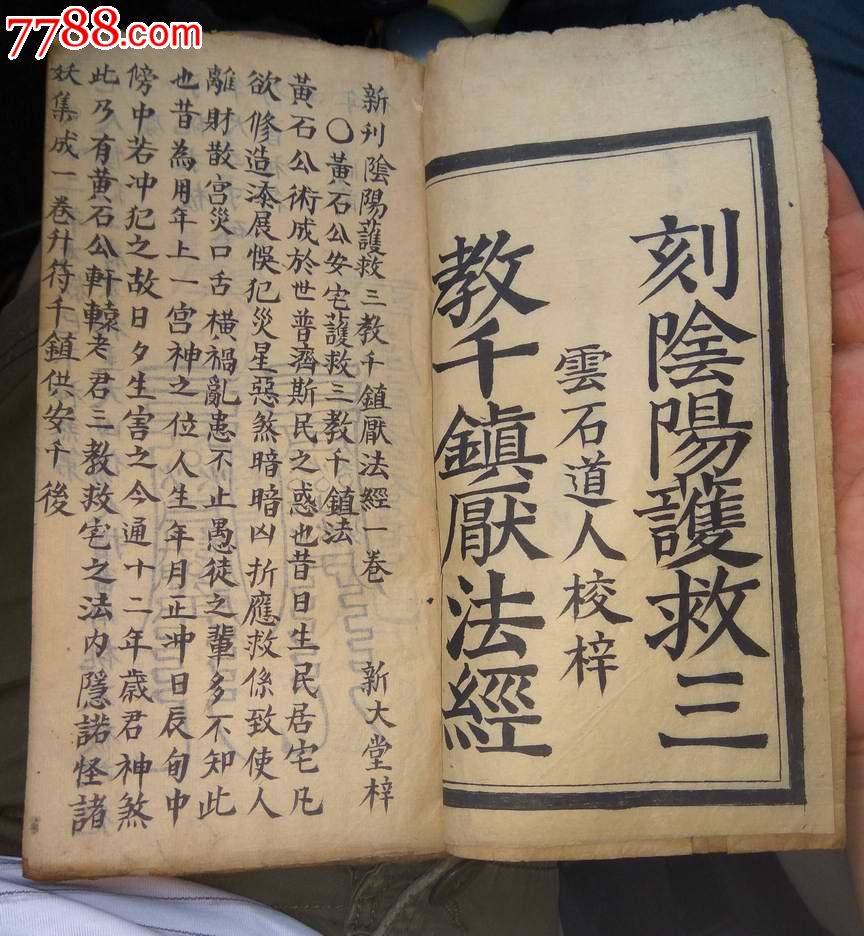 7788.com
刻陰陽護救三
雲石道人校梓
教千鎮厭法經
新刊陰陽護救三教千鎮厭法經一卷 新大堂梓
〇黃石公安宅護救三教千鎮法
黃石公術成於世普濟斯民之惑也昔日生民居宅凡
欲修造添展悞犯災星惡煞暗暗凶折應救係致使人
離財散宮災口舌橫禍亂患不止愚徒之輩多不知此
也昔為用年上一宮神之位人生年月正冲日辰旬中
傍中若冲犯之故日夕生害之今通十二年歲君神煞
此乃有黃石公軒轅老君三教救宅之法內隱諾怪諸
妖集成一卷升符千鎮供安千後